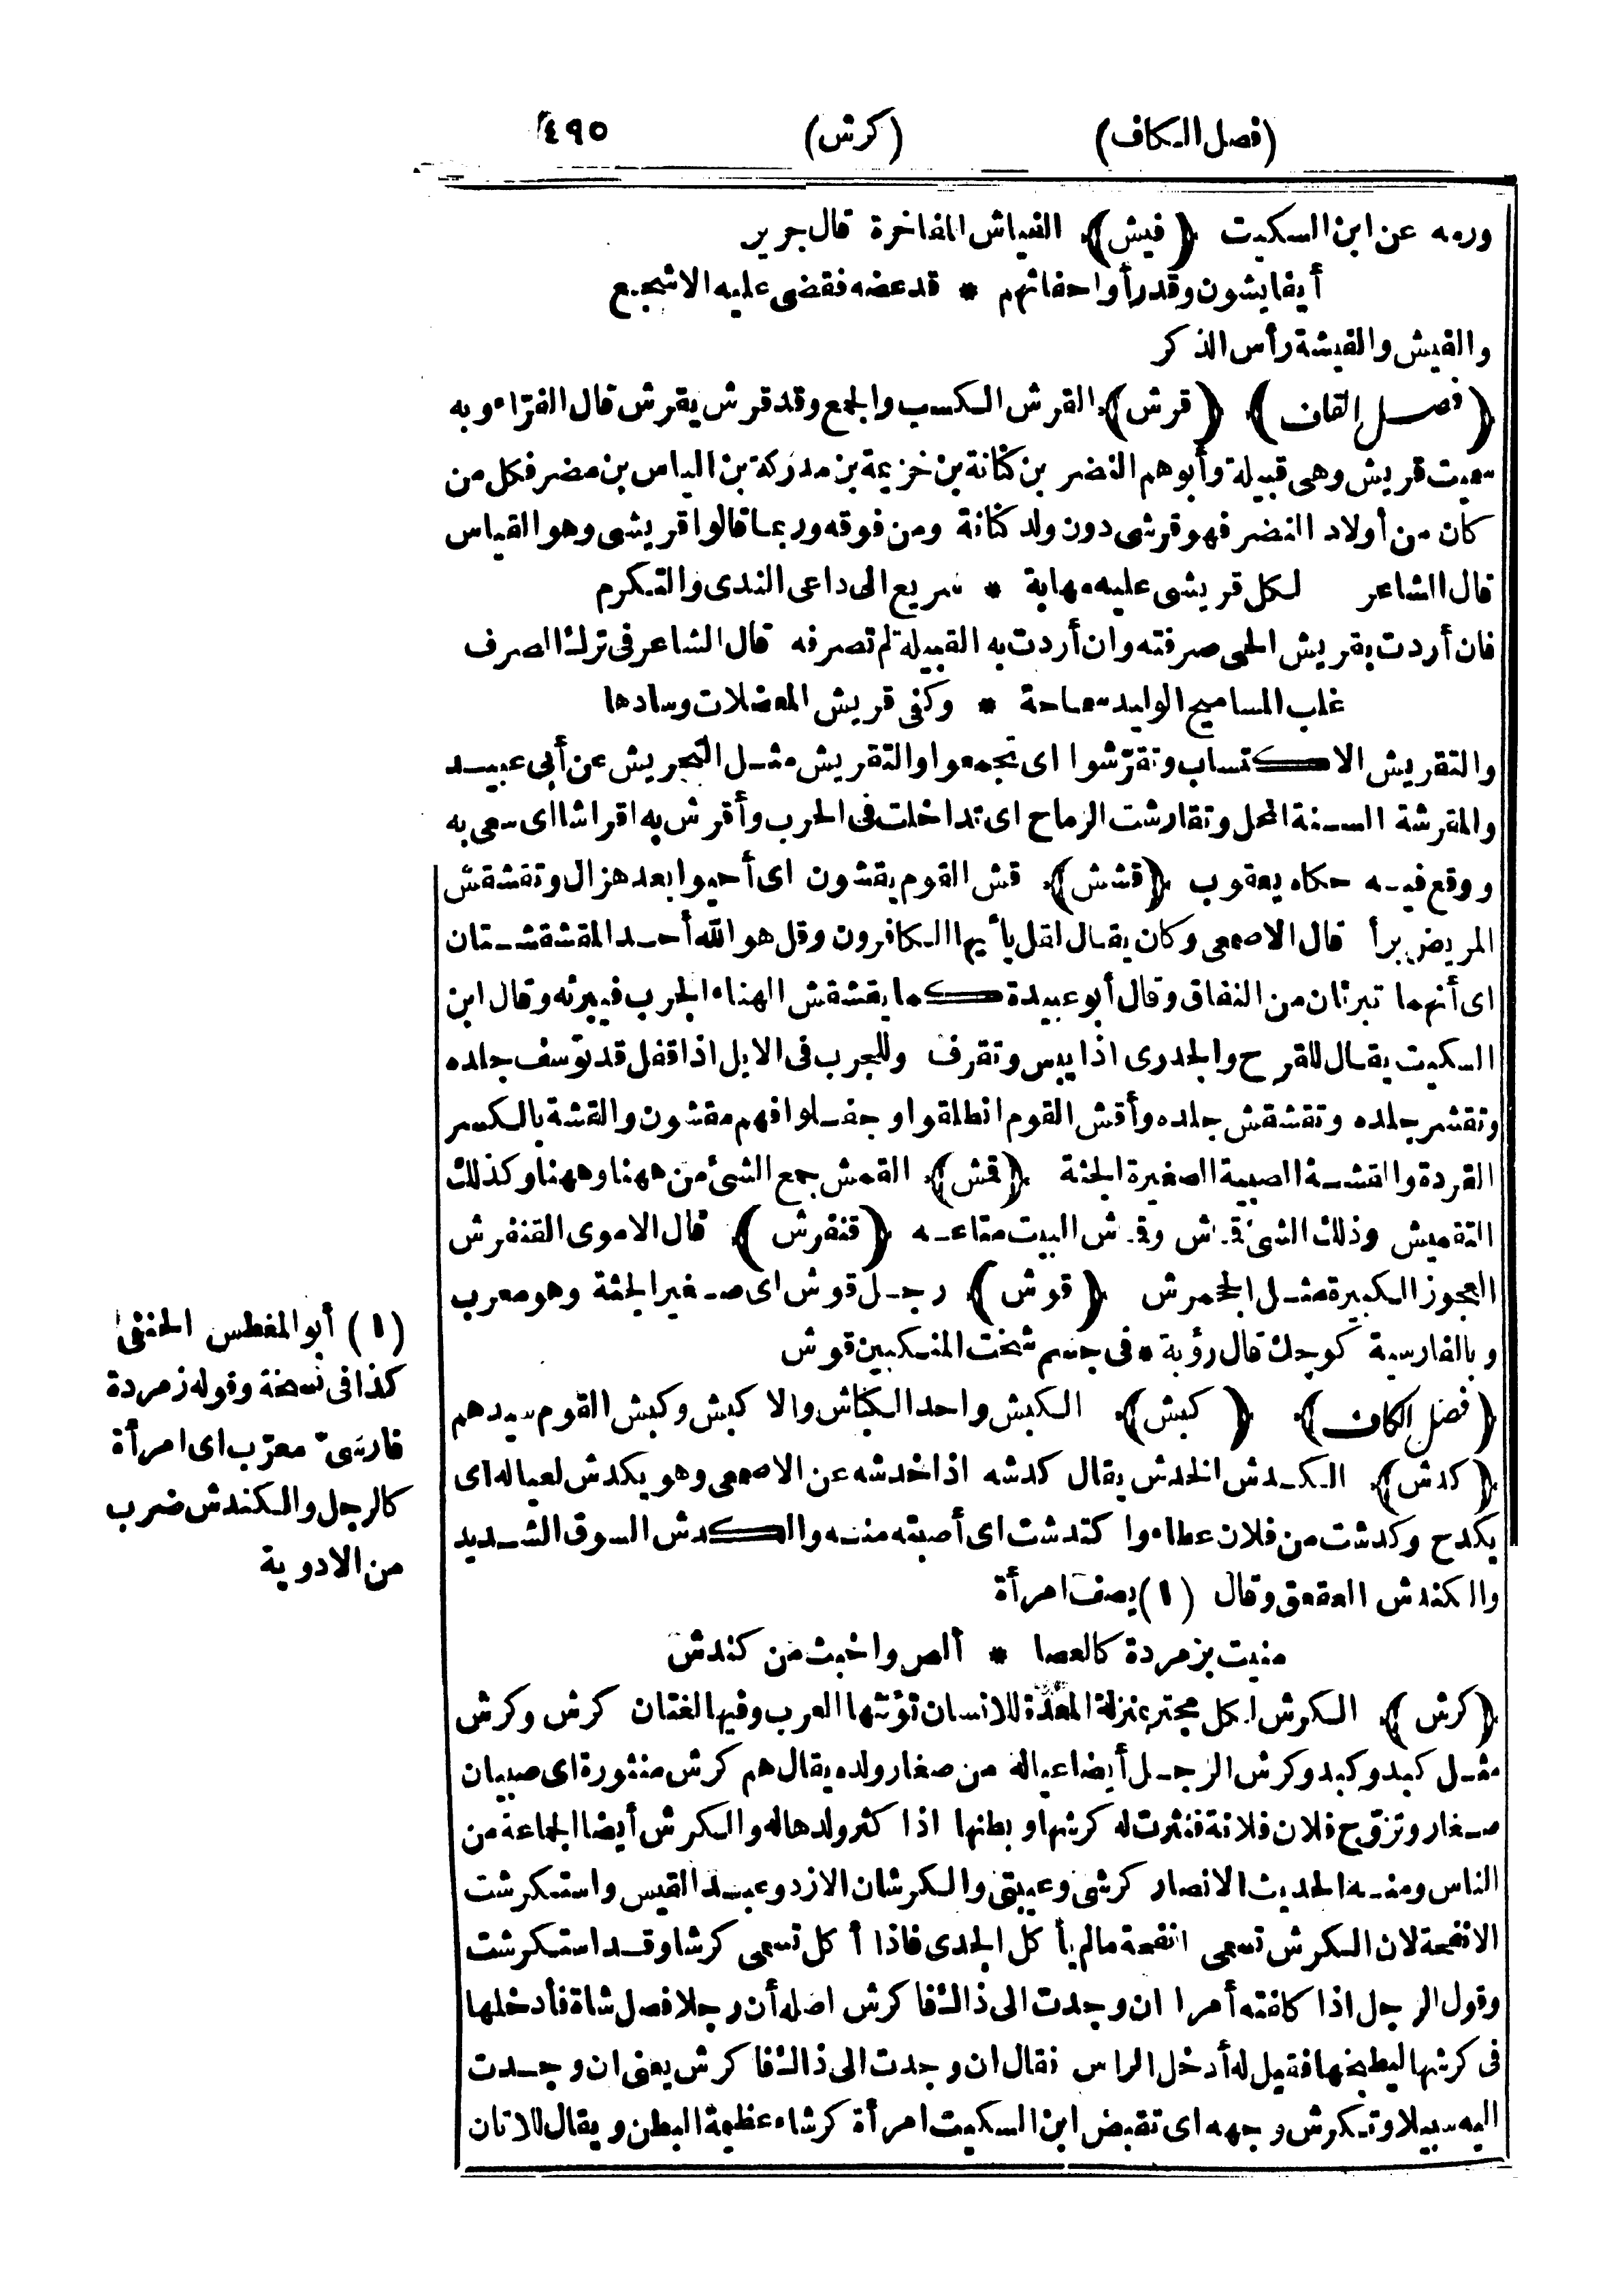 (فصل الكاف) (كرش) ٤٩٥
ورمه عن ابن السكيت ﴿فيش﴾ الفياش المفاخرة قال جرير
أيفايشون وقد رأوا حفاثهم * قد عضه فقضى عليه الاشجع
والفيش والفيشة رأس الذكر
﴿فصل القاف﴾ ﴿قرش﴾ القرش الكسب والجمع وقد قرش يقرش قال الفرّاء وبه
سميت قريش وهى قبيلة وأبوهم النضر بن كنانة بن خزيمة بن مدركة بن الياس بن مضر فكل من
كان من أولاد النضر فهو قرشى دون ولد كنانة ومن فوقه وربما قالوا قريشى وهو القياس
قال الشاعر لكل قريشى عليه مهابة * سريع الى داعى الندى والتكرم
فان أردت بقريش الحى صرفته وان أردت به القبيلة لم تصرفه قال الشاعر فى ترك الصرف
غلب المساميح الوليد سماحة * وكفى قريش المعضلات وسادها
والتقريش الاكتساب وتقرّشوا اى تجمعوا والتقريش مثل التحريش عن أبى عبيد
والمقرشة السنة المحل وتقارشت الرماح اى تداخلت فى الحرب وأقرش به اقراشا اى سعى به
ووقع فيه حكاه يعقوب ﴿قشش﴾ قش القوم يقشون اى أحيوا بعد هزال وتقشقش
المريض برأ قال الاصمعى وكان يقال لقل يأيها الكافرون وقل هو الله أحد المقشقشتان
اى أنهما تبرئان من النفاق وقال أبو عبيدة كما يقشقش الهناء الجرب فيبرئه وقال ابن
السكيت يقال للقرح والجدرى اذا يبس وتقرف وللجرب فى الابل اذا قفل قد توسف جلده
وتقشر جلده وتقشقش جلده وأقش القوم انطلقوا وجفلوا فهم مقشون والقشة بالكسر
القردة والقشة الصبية الصغيرة الجثة ﴿قمش﴾ القمش جمع الشئ من ههنا وههنا وكذلك
التقميش وذلك الشئ قماش وقماش البيت متاعه ﴿قنفرش﴾ قال الاموى القنفرش
العجوز الكبيرة مثل الجحمرش ﴿قوش﴾ رجل قوش اى صغير الجثة وهو معرب
وبالفارسية كوچك قال رؤبة * فى جسم شخت المنكبين قوش
﴿فصل الكاف﴾ ﴿كبش﴾ الكبش واحد الكباش والاكبش وكبش القوم سيدهم
﴿كدش﴾ الكدش الخدش يقال كدشه اذا خدشه عن الاصمعى وهو يكدش لعياله اى
يكدح وكدشت من فلان عطاء واكتدشت اى أصبته منه والكدش السوق الشديد
والكندش العقعق وقال (١) يصف امرأة
منيت بزمردة كالعصا * ألص واخبث من كندش
﴿كرش﴾ الكرش لكل مجتر بمنزلة المعدة للانسان تؤنثها العرب وفيها لغتان كرش وكرش
مثل كبد وكبد وكرش الرجل أيضا عياله من صغار ولده يقال هم كرش منثورة اى صبيان
صغار وتزوّج فلان فلانة فنثرت له كرشها وبطنها اذا كثر ولدها له والكرش أيضا الجماعة من
الناس ومنه الحديث الانصار كرشى وعيبتى والكرشان الازد وعبد القيس واستكرشت
الانفحة لان الكرش تسمى انفحة ما لم يأكل الجدى فاذا أكل تسمى كرشا وقد استكرشت
وقول الرجل اذا كلفته أمرا ان وجدت الى ذلك فاكرش اصله أن رجلا فصل شاة فأدخلها
فى كرشها ليطبخها فقيل له أدخل الراس فقال ان وجدت الى ذلك فاكرش يعنى ان وجدت
اليه سبيلا وتكرش وجهه اى تقبض ابن السكيت امرأة كرشاء عظيمة البطن ويقال للاتان
(١) أبو المغطس الحنفى
كذا فى نسخة وقوله زمردة
فارسىّ معرّب اى امرأة
كالرجل والكندش ضرب
من الادوية